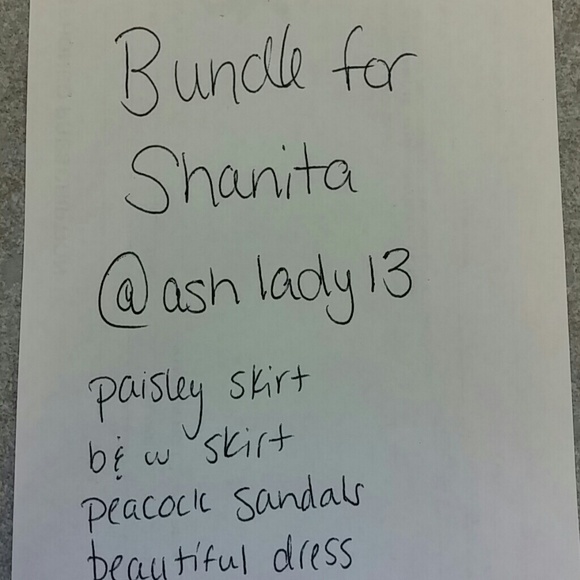 Bundle for
Shanita
@ashlady13
paisley skirt
b & w skirt
peacock sandals
beautiful dress